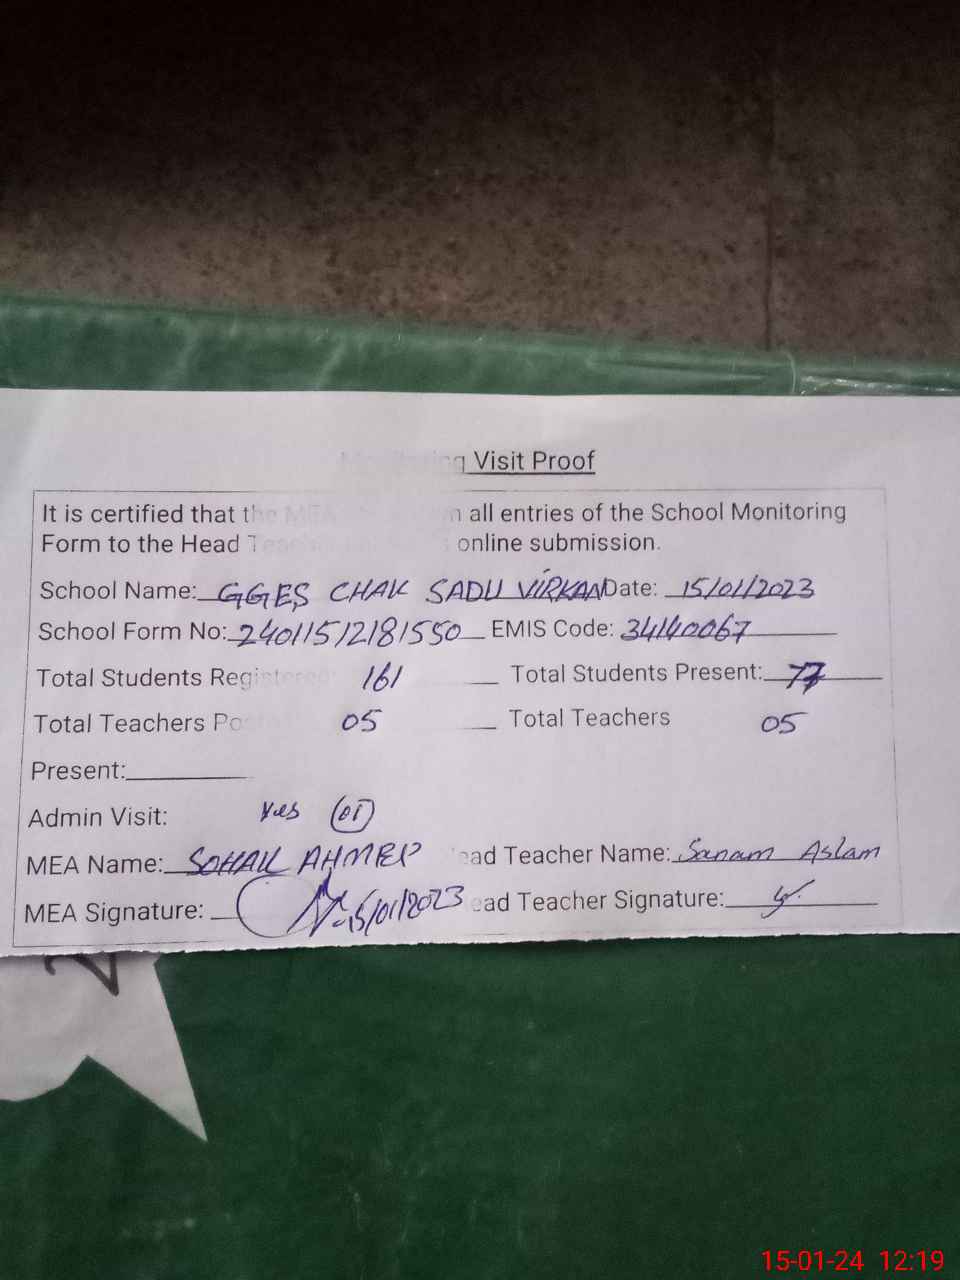 Monitoring Visit Proof
It is certified that the MEA all entries of the School Monitoring
Form to the Head Teacher online submission.
School Name: GGES CHAK SADU VIRKAN Date: 15/01/2023
School Form No: 24011512181550 EMIS Code: 34140067
Total Students Registered: 161 Total Students Present: 77
Total Teachers Po 05 Total Teachers 05
Present:
Admin Visit: Yes (01)
MEA Name: SOHAIL AHMED ead Teacher Name: Sanam Aslam
MEA Signature: 15/01/2023 ead Teacher Signature:
2
15-01-24 12:19